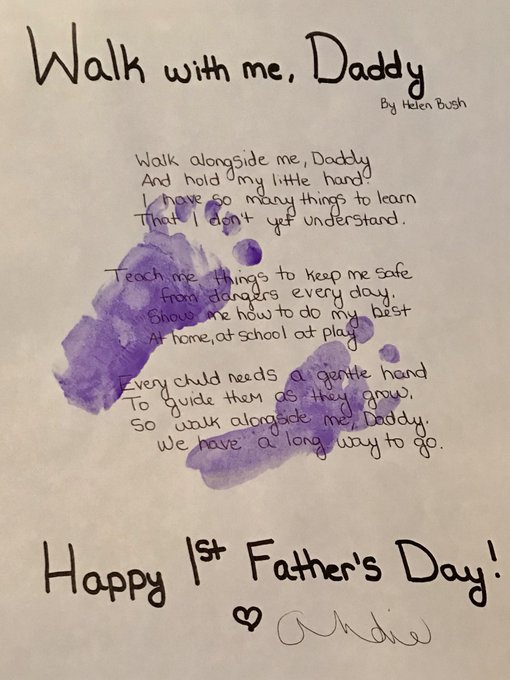 Walk with me, Daddy
By Helen Bush
Walk alongside me, Daddy
And hold my little hand.
I have so many things to learn
That I don't yet understand.
Teach me things to keep me safe
from dangers every day.
Show me how to do my best
At home, at school at play
Every child needs a gentle hand
To guide them as they grow.
So walk alongside me, Daddy.
We have a long way to go.
Happy 1st Father's Day!
♡ Andie